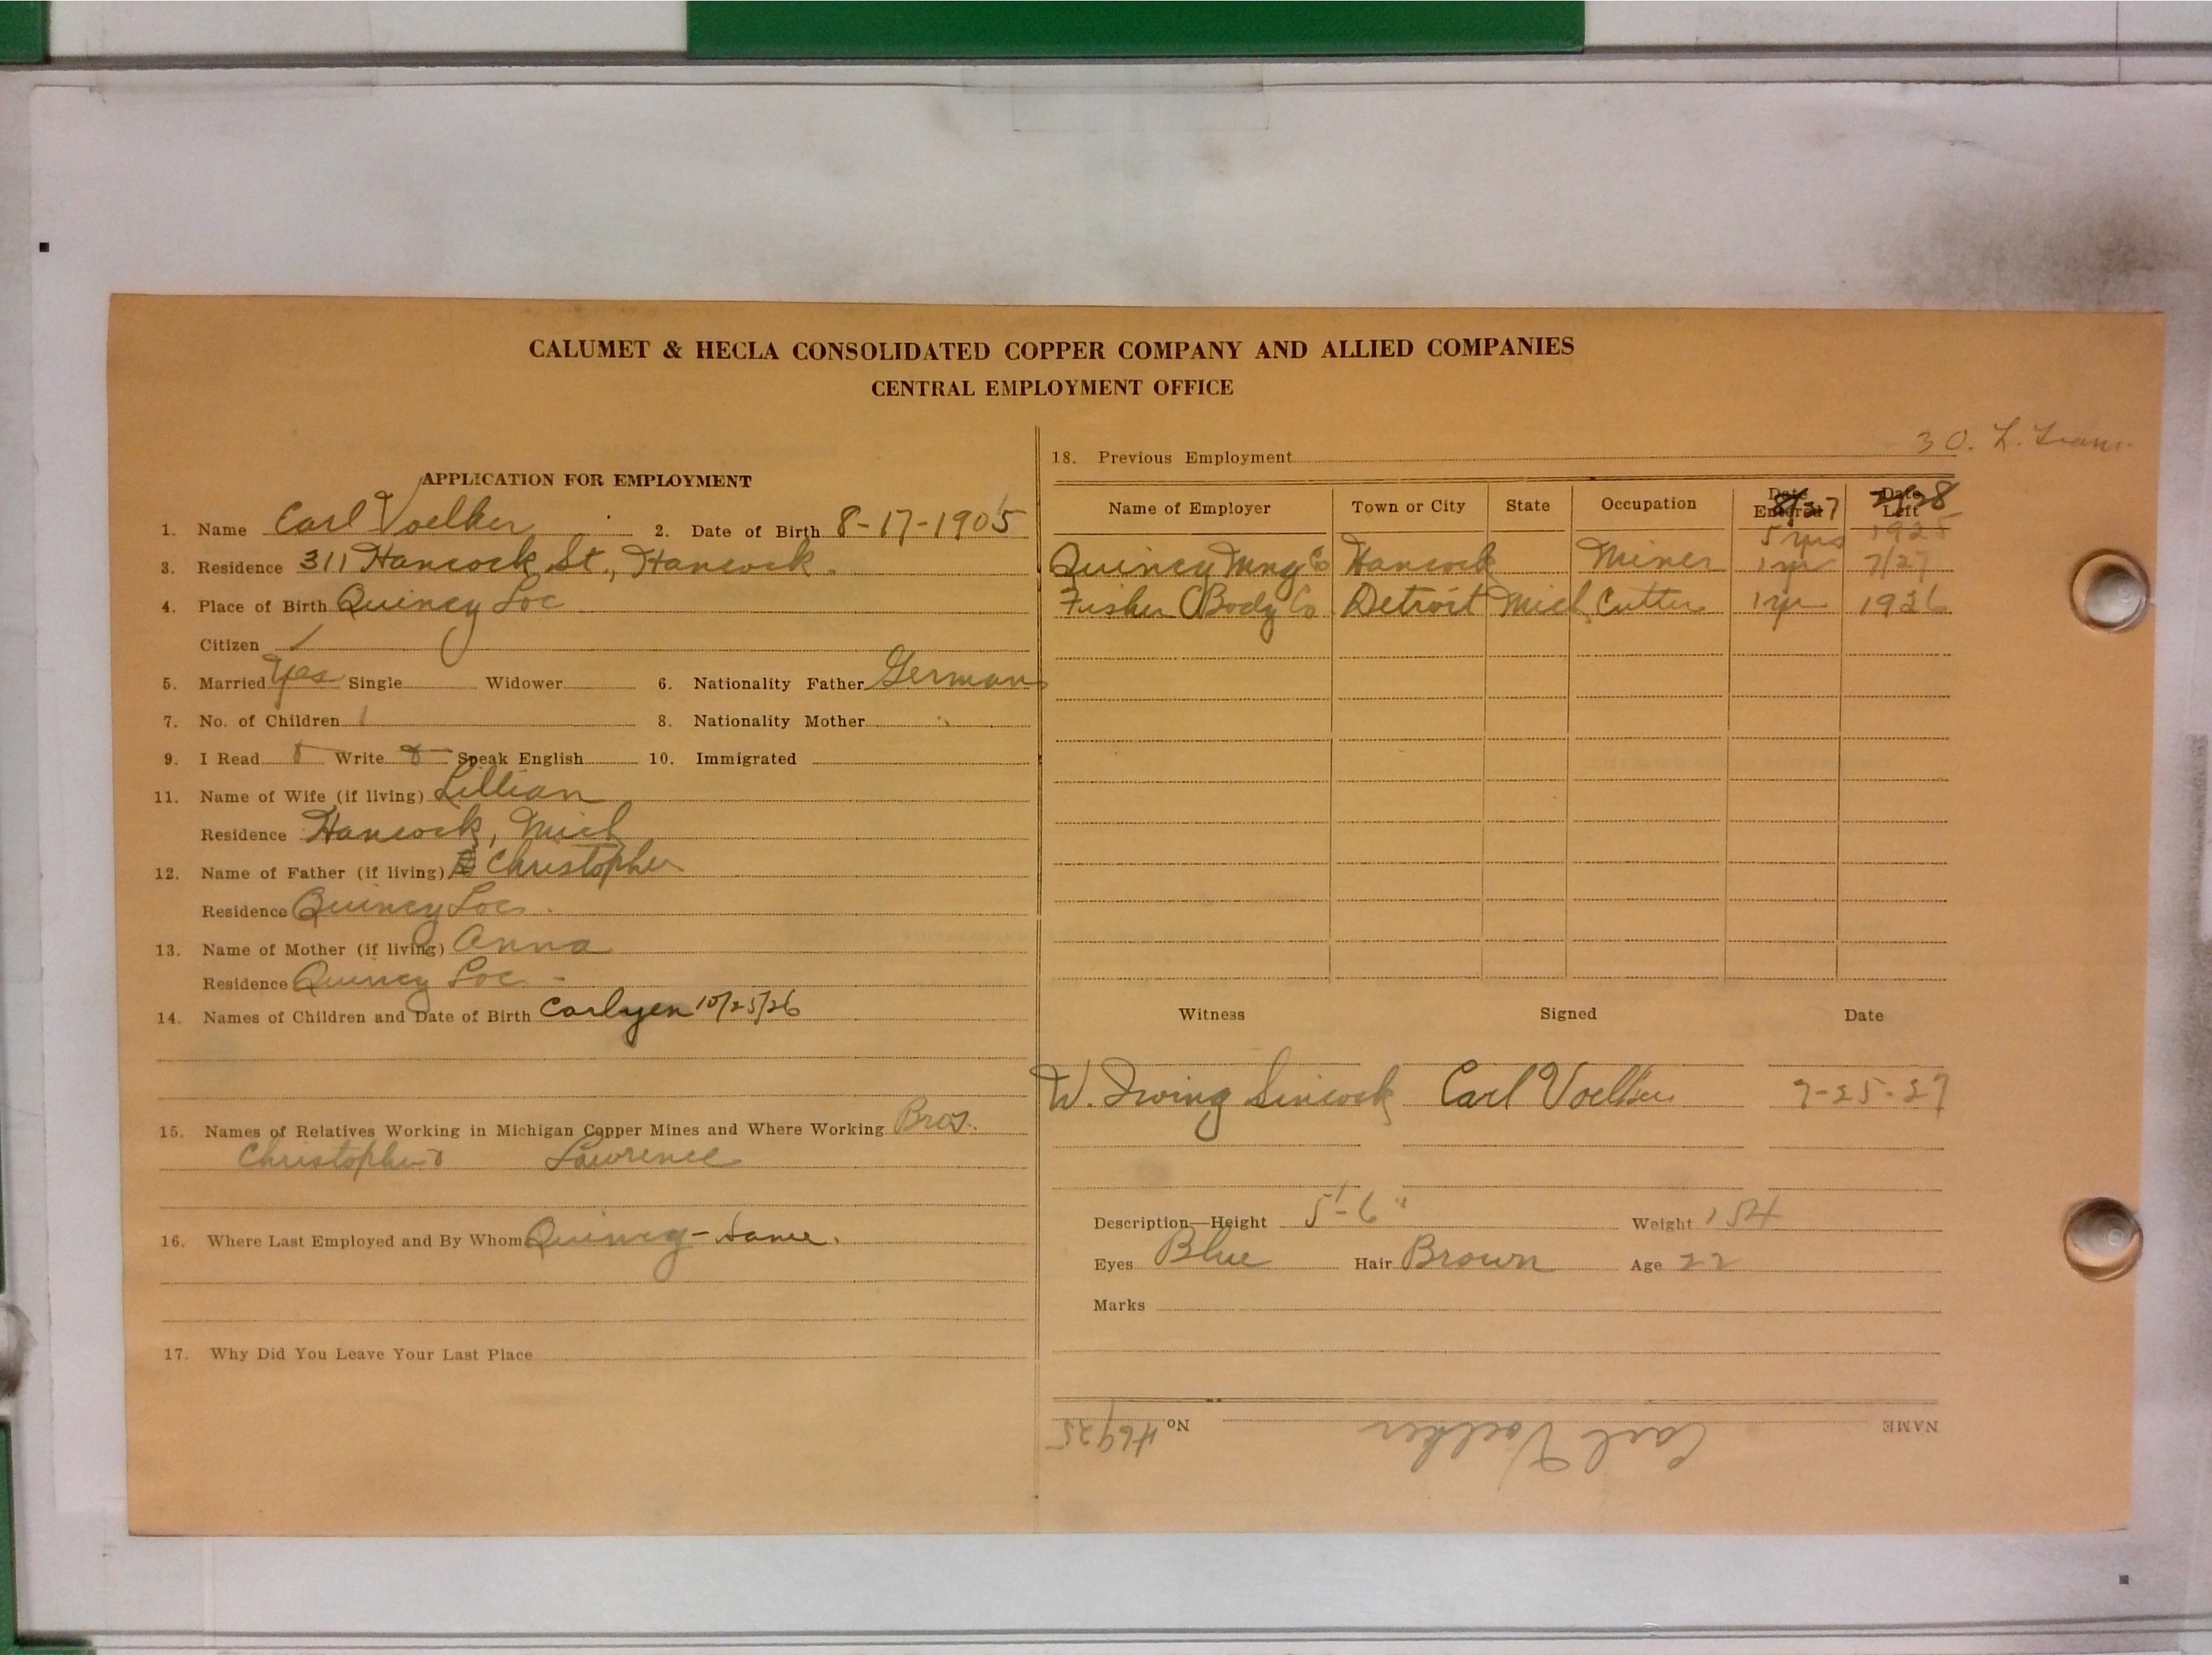 CALUMET & HECLA CONSOLIDATED COPPER COMPANY AND ALLIED COMPANIES
CENTRAL EMPLOYMENT OFFICE
APPLICATION FOR EMPLOYMENT
1. Name Carl Voelker 2. Date of Birth 8-17-1905
3. Residence 311 Hancock St., Hancock.
4. Place of Birth Quincy Loc
Citizen ✓
5. Married Yes Single Widower 6. Nationality Father German
7. No. of Children 1 8. Nationality Mother
9. I Read Write Speak English 10. Immigrated
11. Name of Wife (if living) Lillian
Residence Hancock, Mich
12. Name of Father (if living) Christopher
Residence Quincy Loc.
13. Name of Mother (if living) Anna
Residence Quincy Loc -
14. Names of Children and Date of Birth Carlyen 10/25/26
15. Names of Relatives Working in Michigan Copper Mines and Where Working Bros.
Christopher Lawrence
16. Where Last Employed and By Whom Quincy - Same.
17. Why Did You Leave Your Last Place
30. L.
18. Previous Employment
Name of Employer Town or City State Occupation Date Entered Date Left
5 yrs 1925
Quincy Mng Co Hancock Miner 1 yr 7/27
Fisher Body Co Detroit Mich Cutter 1 yr 1926
Witness Signed Date
W. Irving Sincock Carl Voelker 7-25-27
Description—Height 5'-6" Weight 154
Eyes Blue Hair Brown Age 22
Marks
NAME Carl Voelker No. 46925